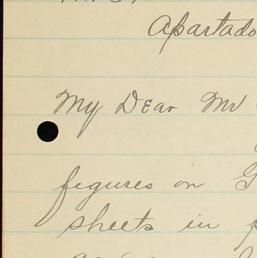 Apartado
My Dear Mr
figures on G
sheets in p